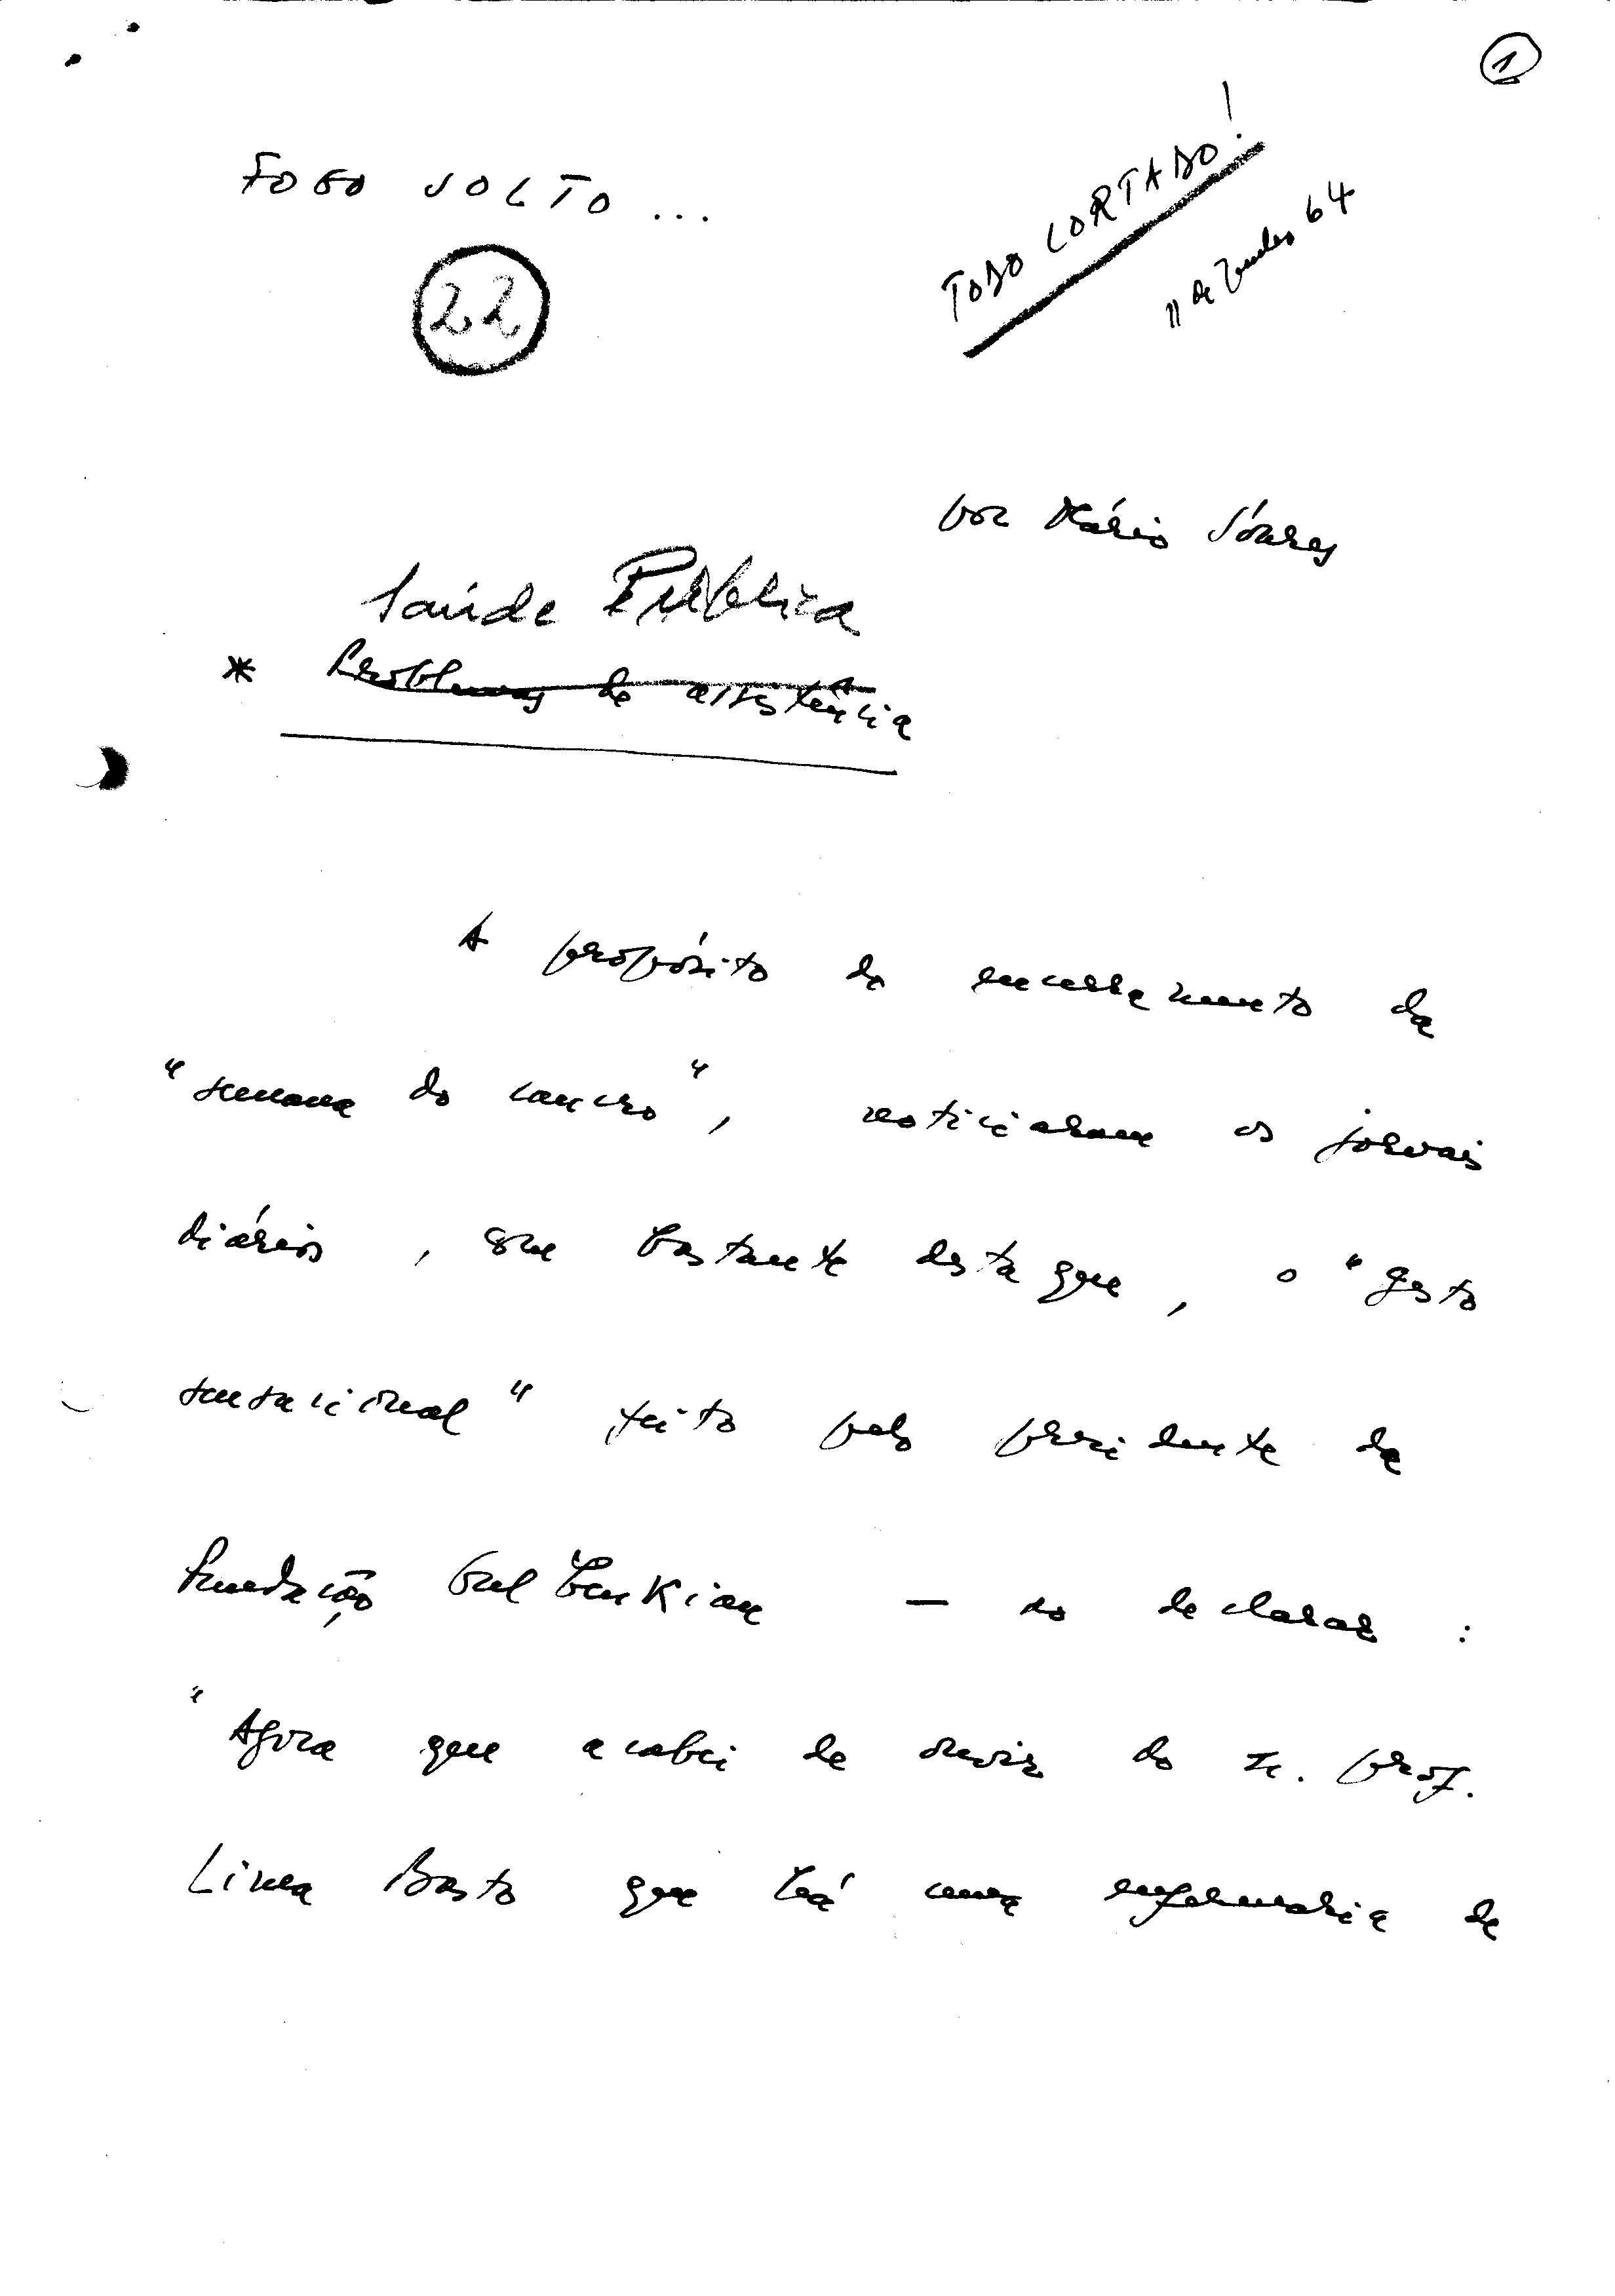 1
FOGO SOLTO...
TODO CORTADO!
11 de Junho 64
22
por Mário Sóares
Saúde Pública
* Problemas de assistência
A propósito do encerramento da
"semana do cancro", noticiaram os jornais
diários, com bastante destaque, o "gesto
sensacional" feito pelo presidente da
Fundação Gulbenkian — ao declarar:
"Agora que acabei de ouvir do sr. prof.
Lima Basto que há uma enfermaria de